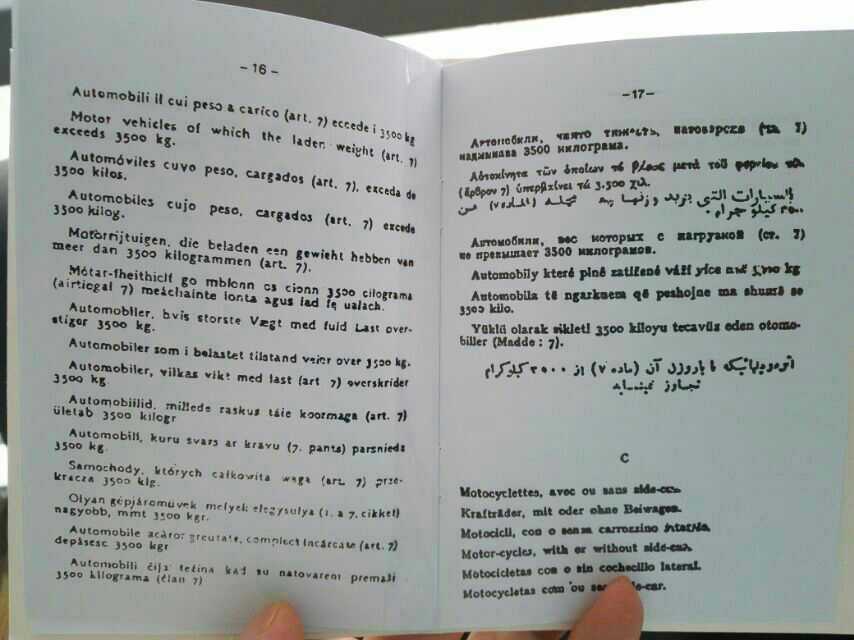 - 16 -
Automobili il cui peso a carico (art. 7) eccede i 3500 kg
Motor vehicles of which the laden weight (art. 7)
exceeds 3500 kg.
Automóviles cuyo peso, cargados (art. 7), exceda de
3500 kilos.
Automobiles cujo peso, cargados (art. 7) excede
3500 kilog.
Motorrijtuigen, die beladen een gewieht hebben van
meer dan 3500 kilogrammen (art. 7).
Mótar-fheithicIf go mblonn os cionn 3500 cilograma
(airtiogal 7) meáchainte ionta agus iad fe ualach.
Automobller, hvis storste Vægt med fuld Last over-
stiger 3500 kg.
Automobiler som i belastet tilstand veier over 3500 kg.
Automobiler, vilkas vikt med last (art 7) overskrider
3500 kg.
Automobiilid, millede raskus täie koormaga (art. 7)
ületab 3500 kilogr
Automobili, kuru svars ar kravu (7. pants) parsnieds
3500 kg.
Samochody, których całkowita waga (art. 7) prze-
kracza 3500 klg.
Olyan gépjáromüvek melyek elegysulya (1. a 7. cikket)
nagyobb, mint 3500 kgr.
Automobile acăror greutate, complect încărcate (art. 7)
depăsesc 3500 kgr
Automobili čija težina kad su natovareni premaši
3500 kilograma (član 7)
-17-
Автомобили, чиято тяжость, натоварска 7)
надминава 3500 килограма.
Αὐτοκίνητα τῶν ὁποίων τό βάρος μετά τοῦ φορτίου
(ἄρθρον 7) ὑπερβαίνει τά 3.500 χιλ.
السيارات التي يزيد وزنها (المادة ٧) عن
٣٥٠٠ كيلو جرام.
Автомобили, вес которых с нагрузкой (ст. 7)
не превышает 3500 килограмов.
Automobily které plně zatížené váží více než 3500 kg
Automobila të ngarkuem që peshojne ma shumë se
3500 kilo.
Yüklü olarak sikleti 3500 kiloyu tecavüs eden otomo-
biller (Madde : 7).
آن (ماده ٧) از ٣٥٠٠ کیلوگرام
تجاوز
C
Motocyclettes, avec ou sans side-car.
Krafträder, mit oder ohne Beiwagen.
Motocicli, con o senza carrozzino
Motor-cycles, with or without side-car.
Motocicletas con o sin cochecillo lateral.
Motocycletas com ou side-car.